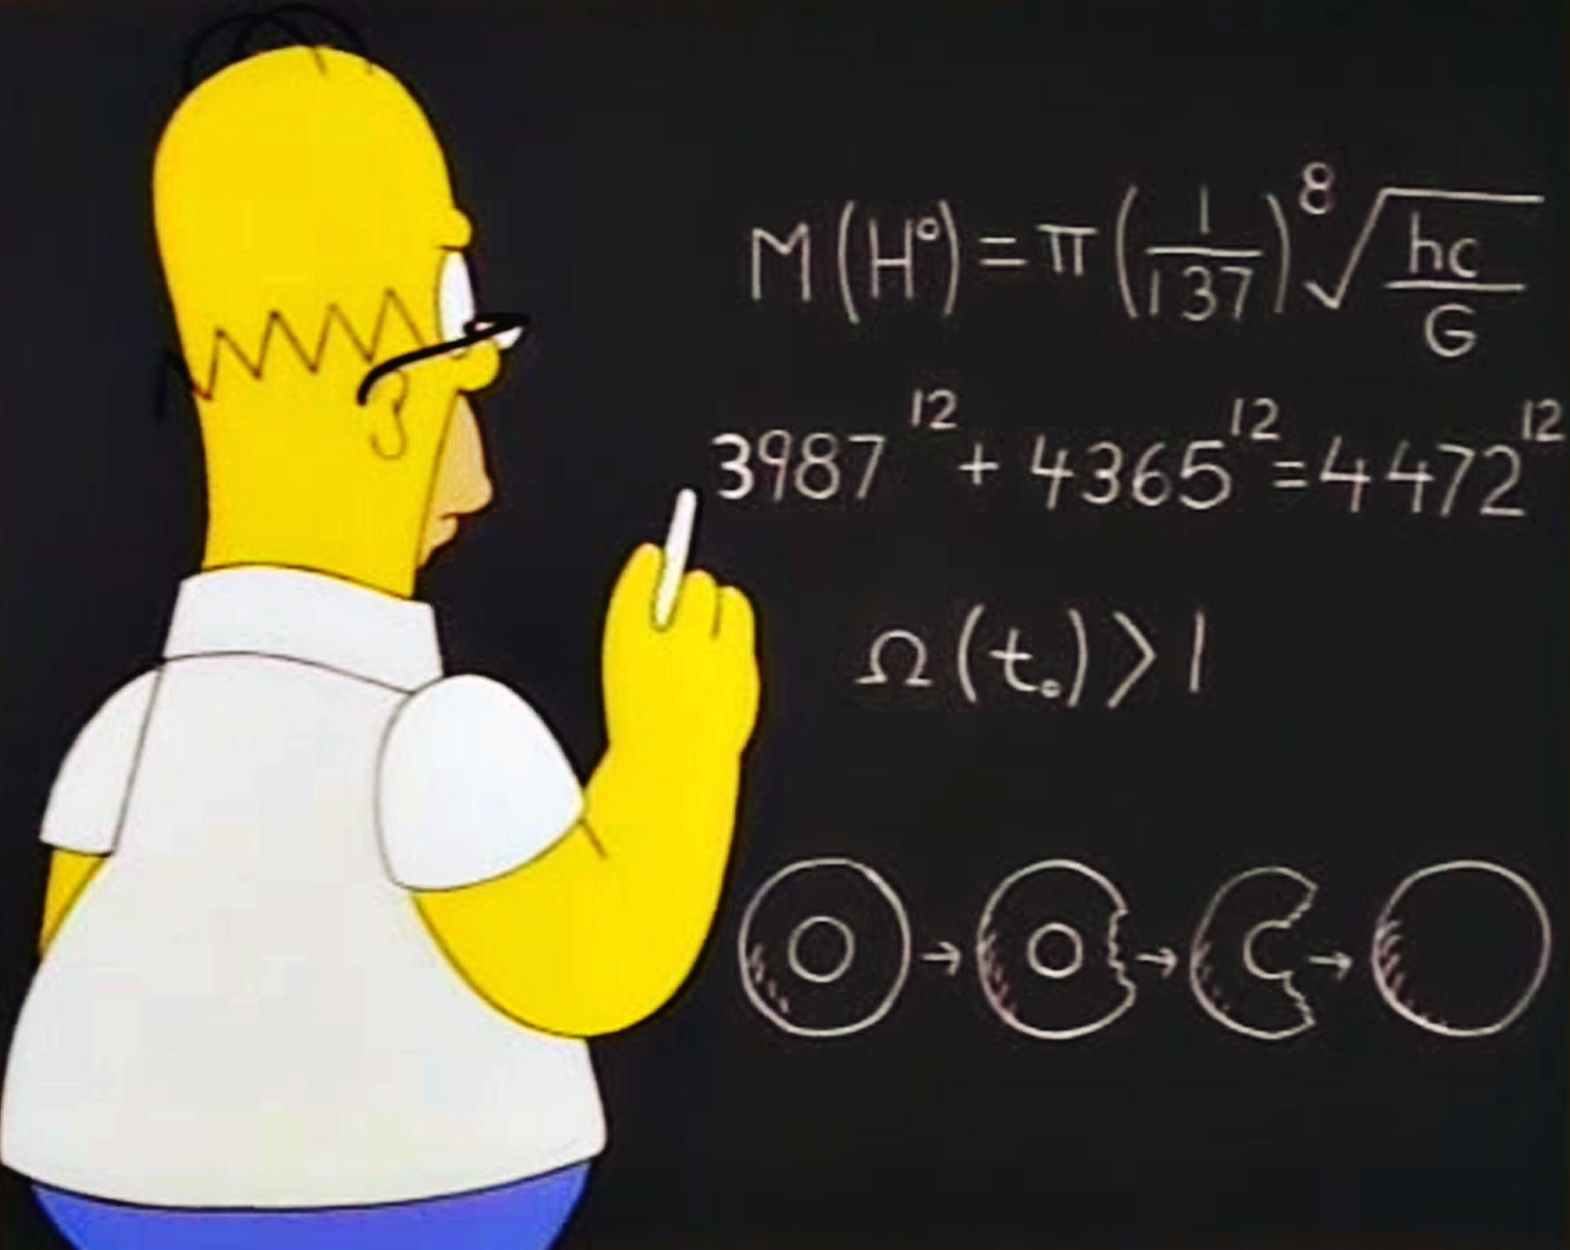 M(H°) = π(1/137)⁸ √(hc/G)
3987¹² + 4365¹² = 4472¹²
Ω(t₀) > 1